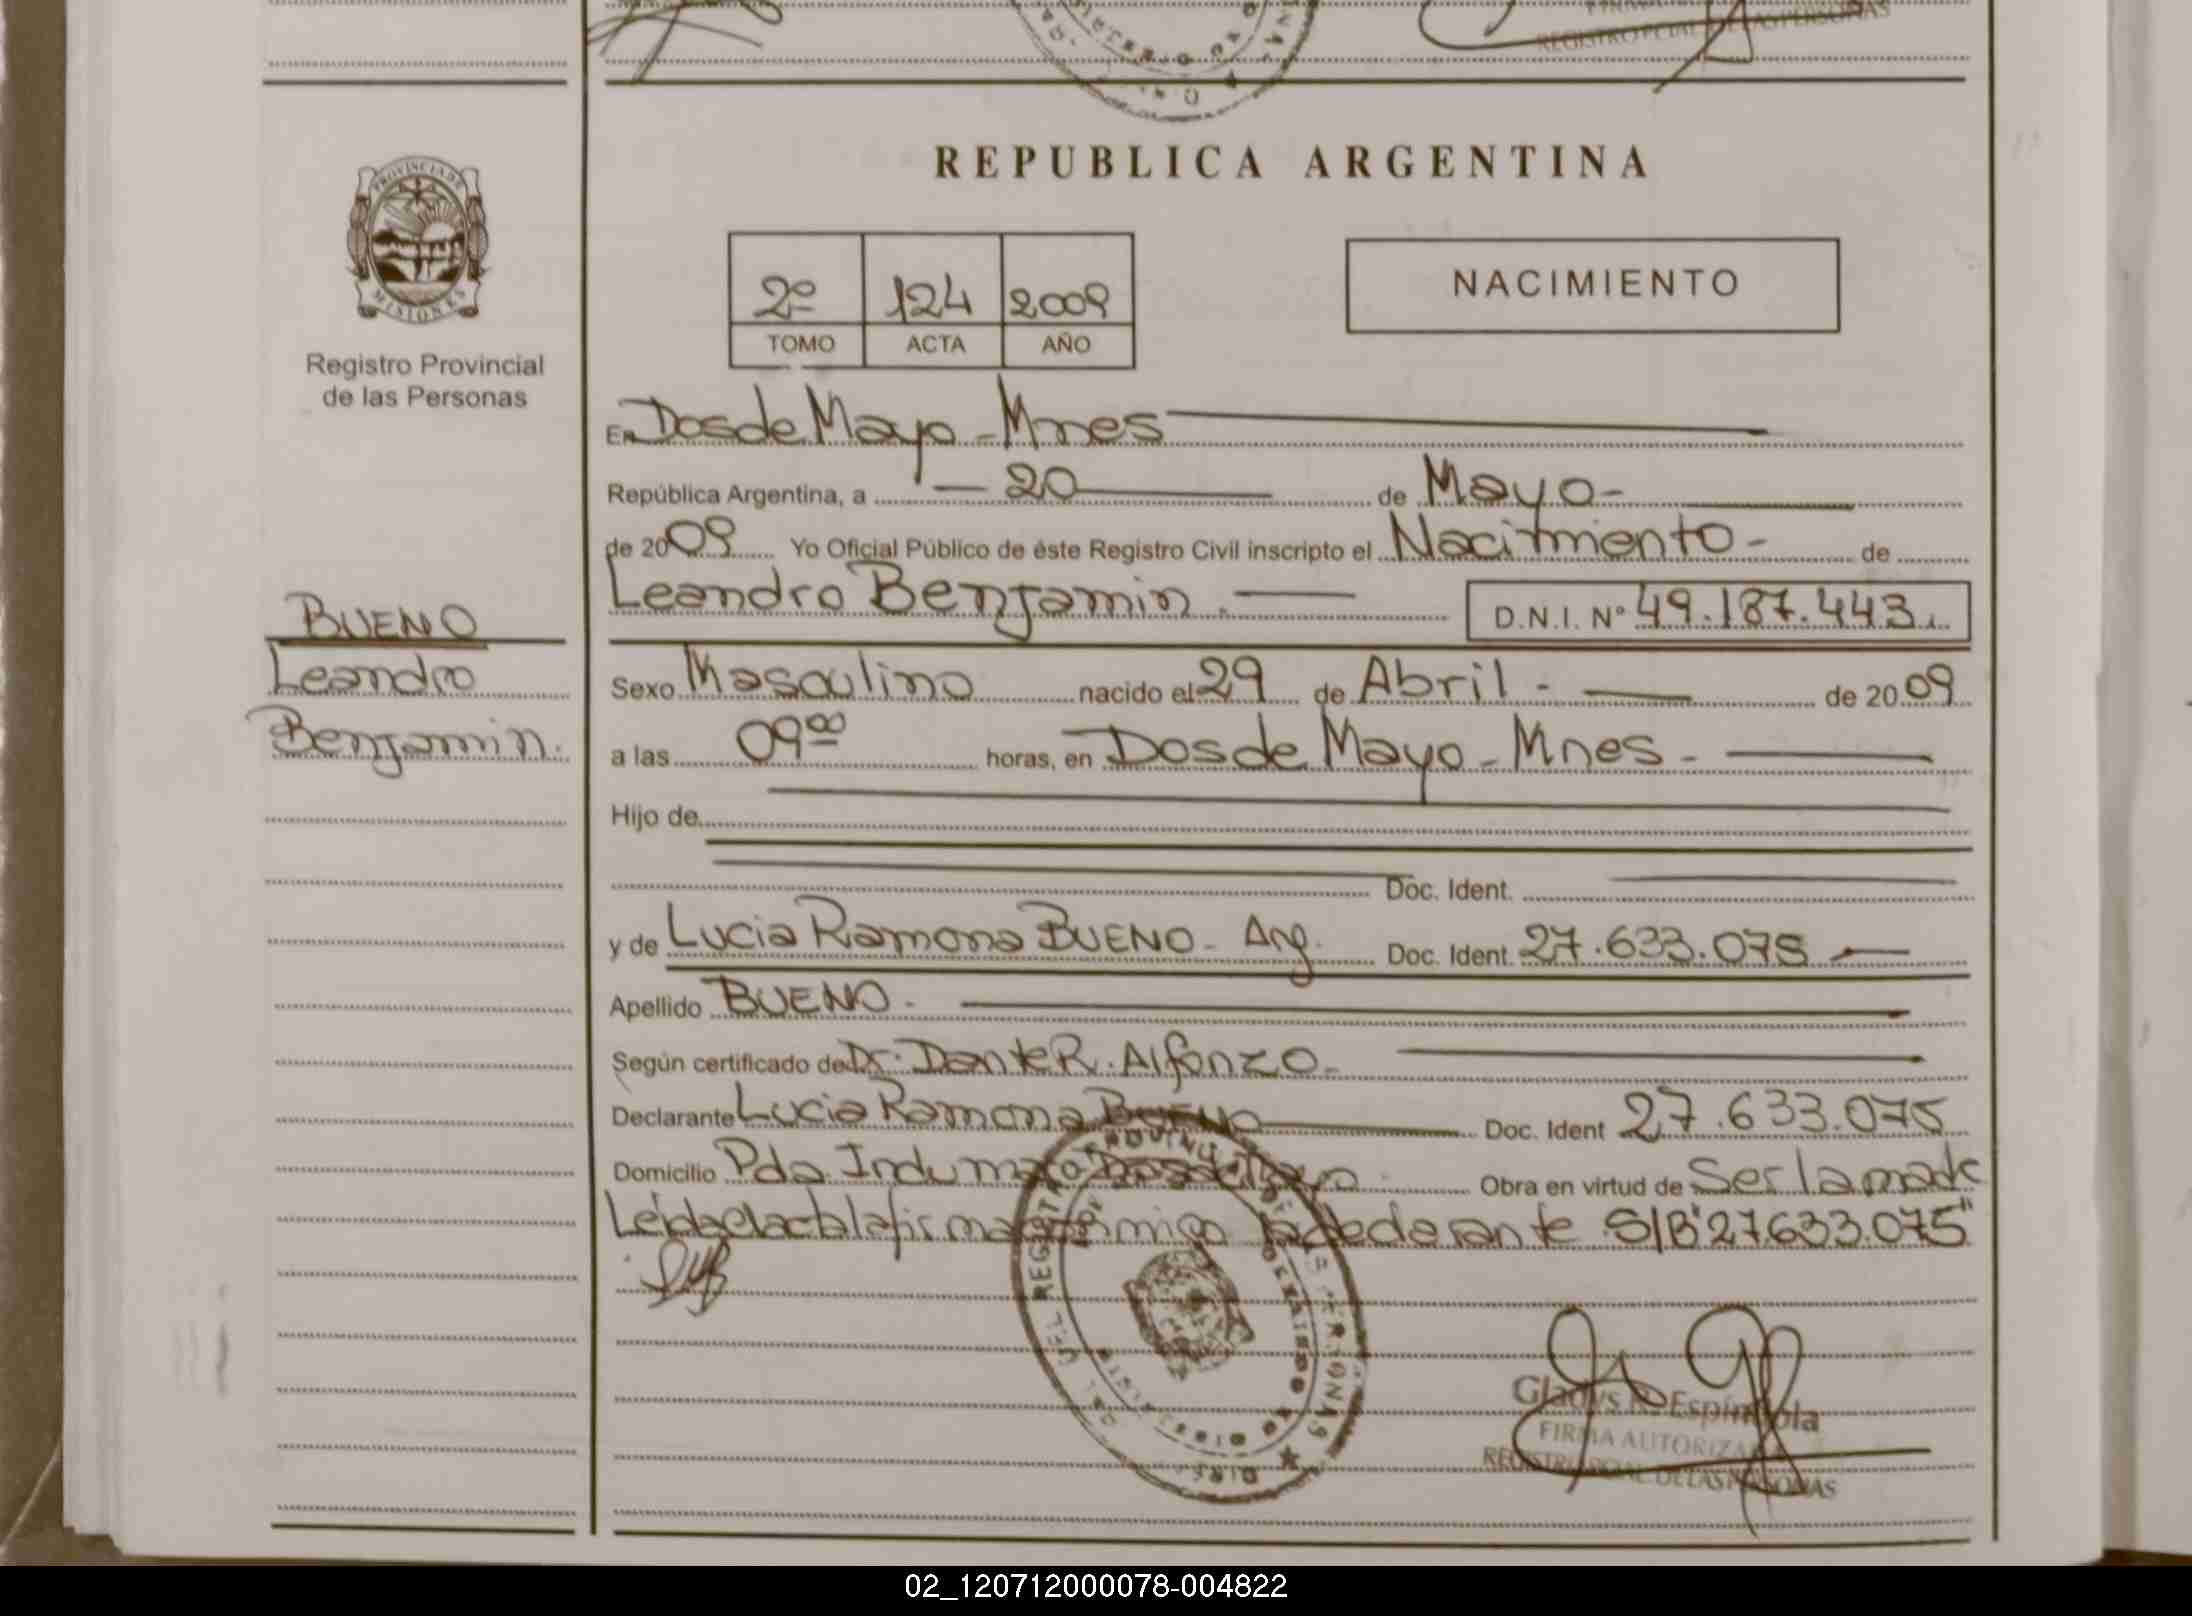 REGISTRO PCIAL DE LAS PERSONAS
REPUBLICA ARGENTINA
PROVINCIA DE
MISIONES
Registro Provincial
de las Personas
2º 124 2009
TOMO ACTA AÑO
NACIMIENTO
En Dos de Mayo - Mnes
República Argentina, a — 20 de Mayo -
de 2009 Yo Oficial Público de éste Registro Civil inscripto el Nacimiento - de
Leandro Benjamin. D.N.I. Nº 49.187.443.
BUENO
Leandro
Benjamin.
Sexo Masculino nacido el 29 de Abril - de 2009
a las 09 00 horas, en Dos de Mayo - Mnes -
Hijo de
Doc. Ident.
y de Lucia Ramona BUENO - Arg. Doc. Ident. 27.633.075
Apellido BUENO -
Según certificado de Dr. Dante R. Alfonzo -
Declarante Lucia Ramona Bueno Doc. Ident 27.633.075
Domicilio Pda. Indumaro Dos de Mayo Obra en virtud de Ser la madre
Leida el acta la firma conmigo la declarante S/B "27.633.075"
Gladys R. Espindola
FIRMA AUTORIZADA
REGISTRO PCIAL. DE LAS PERSONAS
02_120712000078-004822